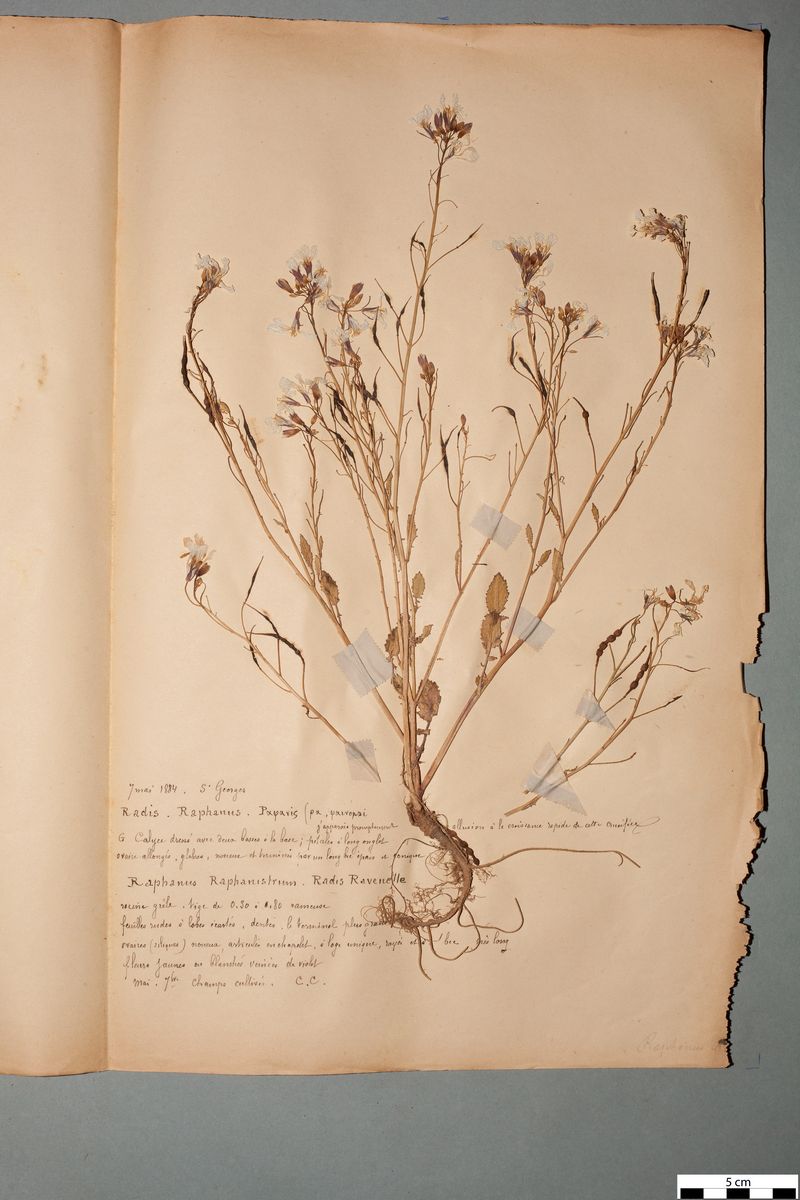 7 mai 1884. St Georges
Radis. Raphanus. Paparis (pa,
j'apparais promptement allusion à la croissance rapide de cette crucifère
G Calyce dressé avec deux bosses à la base; pétales à long onglet
ovaire allongé, glabre, noueux et terminé par un long bec épais et conique
Raphanus Raphanistrum. Radis Ravenelle
racine grêle. tige de 0.30 à 0.80 rameuse
feuilles rudes à lobes écartés, dentés, le terminal plus grand
ovaires (siliques) noueux articulés en chapelet, à loge unique, rayés et à bec très long
fleurs jaunes ou blanches veinées de violet
Mai. 7bre Champs cultivés. C.C.
Raphanus
5 cm